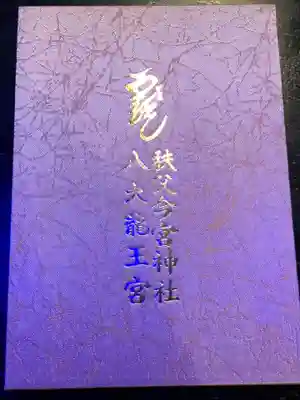 秩父今宮神社
八大龍王宮